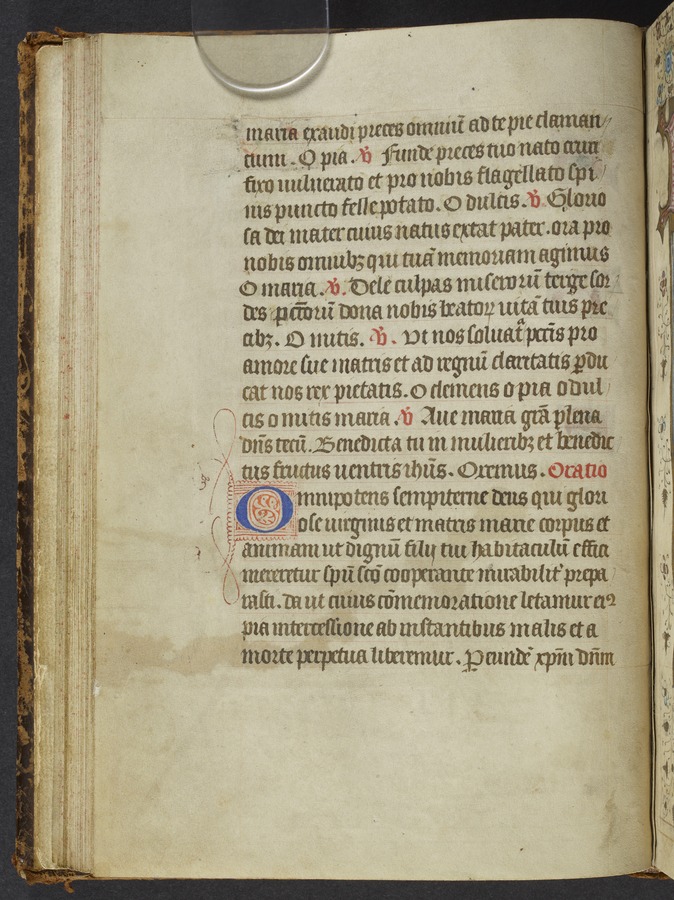 maria exaudi preces omniū ad te pie claman
tium. O pia. ℣ Funde preces tuo nato cruci
fixo uulnerato et pro nobis flagellato spi
nis puncto felle potato. O dulcis. ℣. Glorio
sa dei mater cuius natus extat pater. ora pro
nobis omnibꝫ qui tuā memoriam agimus
O maria. ℣. Dele culpas miserorū terge sor
des pc̄corū dona nobis beatoꝝ uitā tuis pre
cibꝫ. O mitis. ℣. Vt nos soluat pc̄tis pro
amore sue matris et ad regnū claritatis ꝑdu
cat nos rex pietatis. O clemens o pia o dul
cis o mitis maria. ℣ Aue maria grā plena
dn̄s tecū. Benedicta tu in mulieribꝫ et benedic
tus fructus uentris ihūs. Oremus. Oratio
Omnipotens sempiterne deus qui glori
ose uirginis et matris marie corpus et
animam ut dignū filij tui habitaculū effici
mereretur spū scō cooperante mirabilit' prepa
rasti. da ut cuius cōmemoratione letamur eiꝰ
pia intercessione ab instantibus malis et a
morte perpetua liberemur. P eundē xp̄m dn̄m